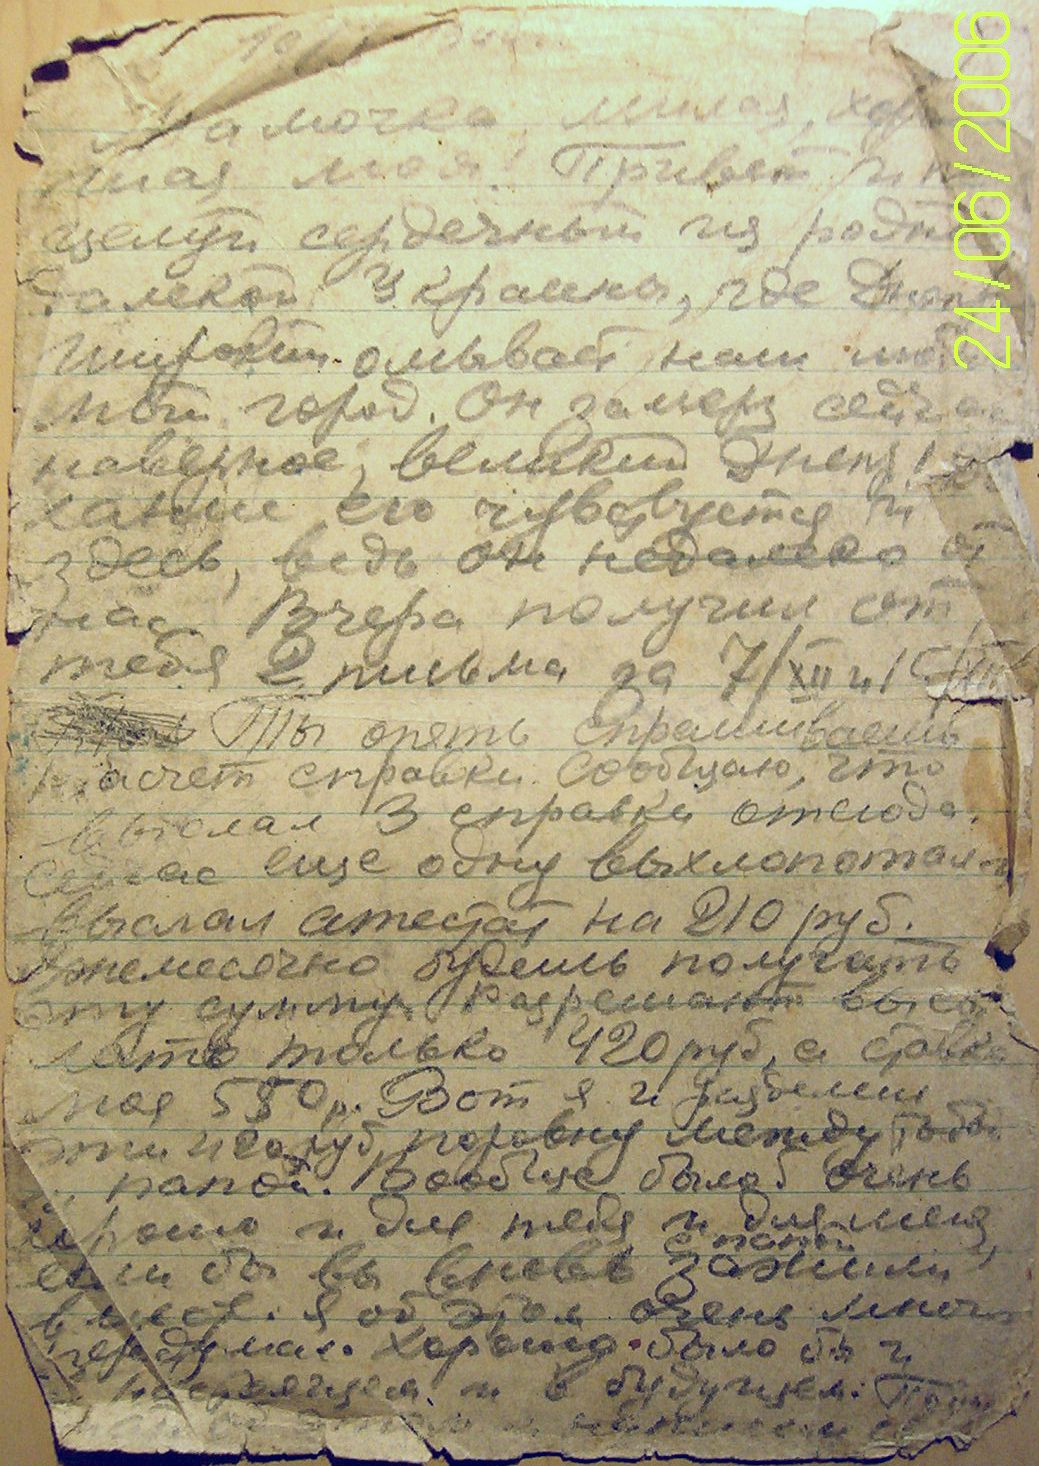 Мамочка, милая, хоро
шая моя! Привет и по
целуй сердечный из родной
далекой Украины, где Днепр
широкий омывает наш люби
мый город. Он замерз сейчас
наверное, великий Днепр!
хание его чувствуется и
здесь, ведь он недалеко от
нас. Вчера получил от
тебя 2 письма за 7/XII и
Ты опять спрашиваешь
насчет справки. Сообщаю, что
выслал 3 справки отсюда.
Сейчас еще одну выхлопотал и
выслал атестат на 210 руб.
Ежемесячно будешь получать
эту сумму. Разрешают высы
лать только 420 руб, а ставка
моя 550 р. Вот я и разделил
эти руб поровну между тобой
и папой. Вообще былоб очень
хорошо и для тебя и для меня,
с папой
если бы вы вновь зажили
вместе. Я об этом очень много
передумал. Хорошо было бы и
в настоящем и в будущем.
об этом и напиши
24/06/2006